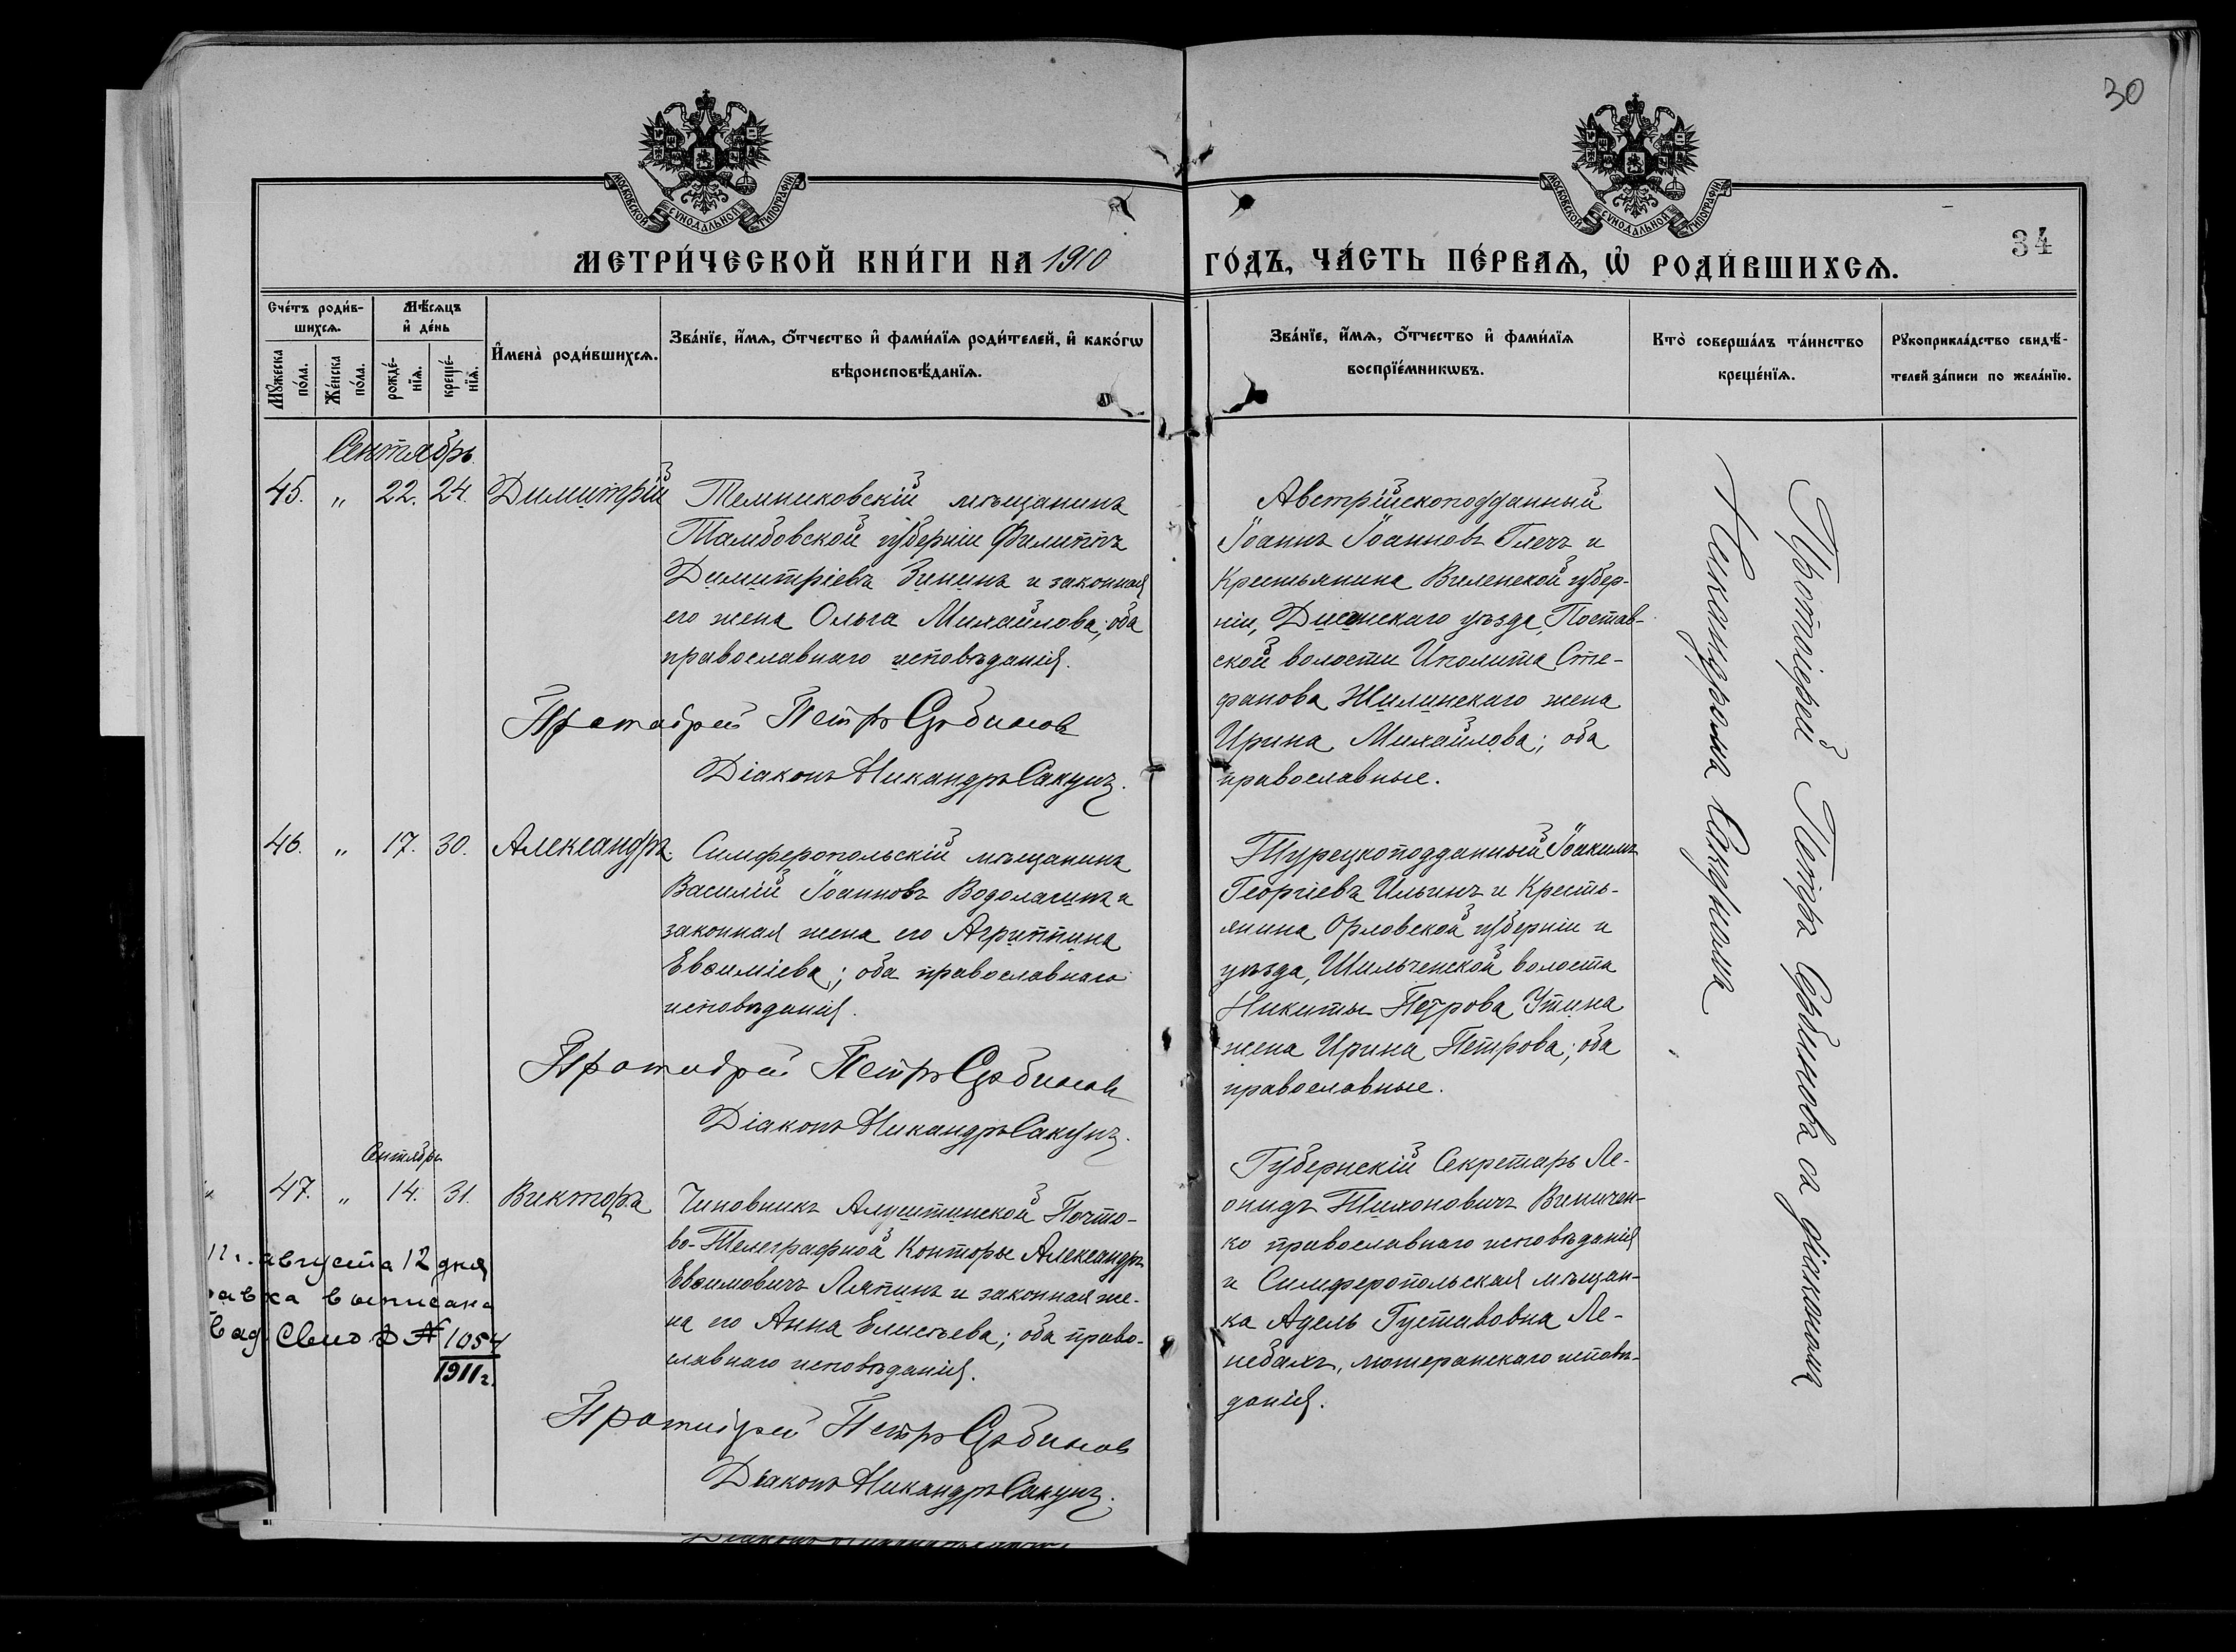 30
МОСКОВСКОЙ СѴНОДАЛЬНОЙ ТИПОГРАФІИ
МОСКОВСКОЙ СѴНОДАЛЬНОЙ ТИПОГРАФІИ
МЕТРИ́ЧЕСКОЙ КНИ́ГИ НА 1910
ГО́ДЪ, ЧА́СТЬ ПЕ́РВАѦ, Ѽ РОДИ́ВШИХСѦ.
34
Сче́тъ роди́в-
шихсѧ.
Мѣ́сѧцъ
и҆ де́нь
Мꙋ́жеска
по́ла.
Же́нска
по́ла.
рожде́-
нїѧ.
креще́-
нїѧ.
И҆мена̀ роди́вшихсѧ.
Зва́нїе, и҆́мѧ, ѻ҆́тчество и҆ фами́лїѧ роди́телей, и҆ како́гѡ
вѣроисповѣ́данїѧ.
Зва́нїе, и҆́мѧ, ѻ҆́тчество и҆ фами́лїѧ
воспрїе́мникѡвъ.
Кто̀ соверша́лъ та́инство
креще́нїѧ.
Рꙋкоприкла́дство свидѣ́-
телей за́писи по жела́нїю.
Сентябрь.
45. " 22. 24. Димитрій
Темниковскій мѣщанинъ
Тамбовской губерніи Филиппъ
Димитріевъ Зининъ и законная
его жена Ольга Михайлова; оба
православнаго исповѣданія.
Протоіерей Петръ Сербиновъ
Діаконъ Никандръ Сакунъ.
Австрійскоподданный
Іоаннъ Іоанновъ Глечъ и
Крестьянина Виленской губер-
ніи, Дисенскаго уѣзда, Постав-
ской волости Иполита Сте-
фанова Жилинскаго жена
Ирина Михайлова; оба
православные.
46. " 17. 30. Александръ.
Симферопольскій мѣщанинъ
Василій Іоанновъ Водолагинъ и
законная жена его Агриппина
Евѳиміева; оба православнаго
исповѣданія.
Протоіерей Петръ Сербиновъ
Діаконъ Никандръ Сакунъ.
Турецкоподданный Іоакимъ
Георгіевъ Ильинъ и Кресть-
янина Орловской губерніи и
уѣзда, Шильченской волости
Никиты Петрова Утина
жена Ирина Петрова; оба
православные.
Сентябрь
47. " 14. 31. Виктора
Чиновникъ Алуштинской Почто-
во-Телеграфной Конторы Александръ
Евѳимовичъ Ляпинъ и законная же-
на его Анна Елисѣева; оба право-
славнаго исповѣданія.
Протоіерей Петръ Сербиновъ
Діаконъ Никандръ Сакунъ.
Губернскій Секретарь Ле-
онидъ Тихоновичъ Виничен-
ко православнаго исповѣданія
и Симферопольская мѣщан-
ка Адель Густавовна Ле-
небахъ, лютеранскаго исповѣ-
данія.
августа 12 дня
авка выписана
1054
1911 г.
Протоіерей Петръ Сербиновъ съ діакономъ
Никандромъ Сакуномъ